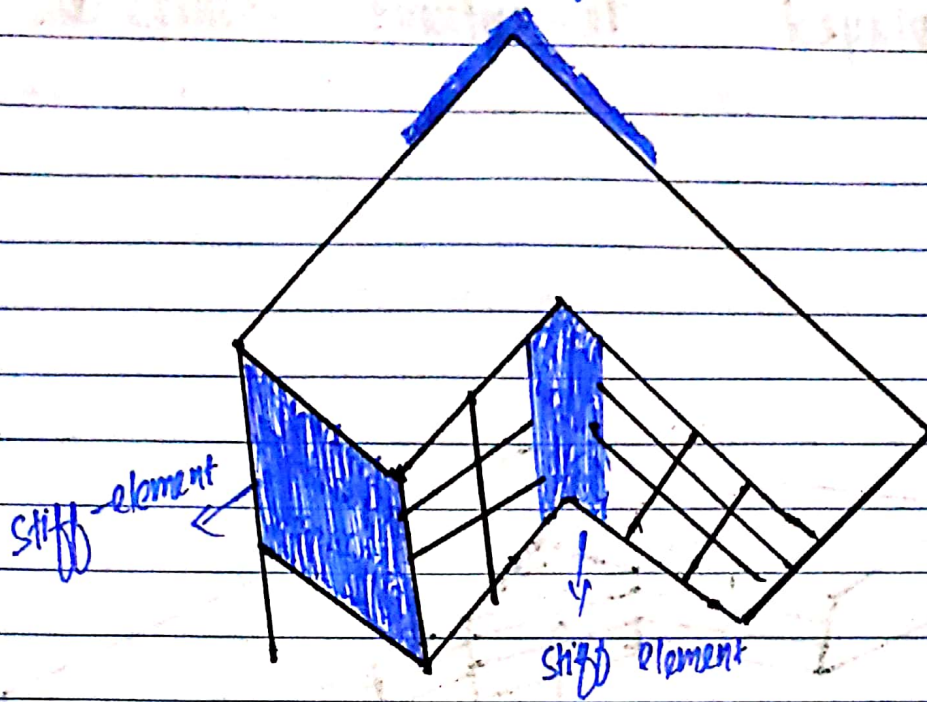 stiff element
stiff element